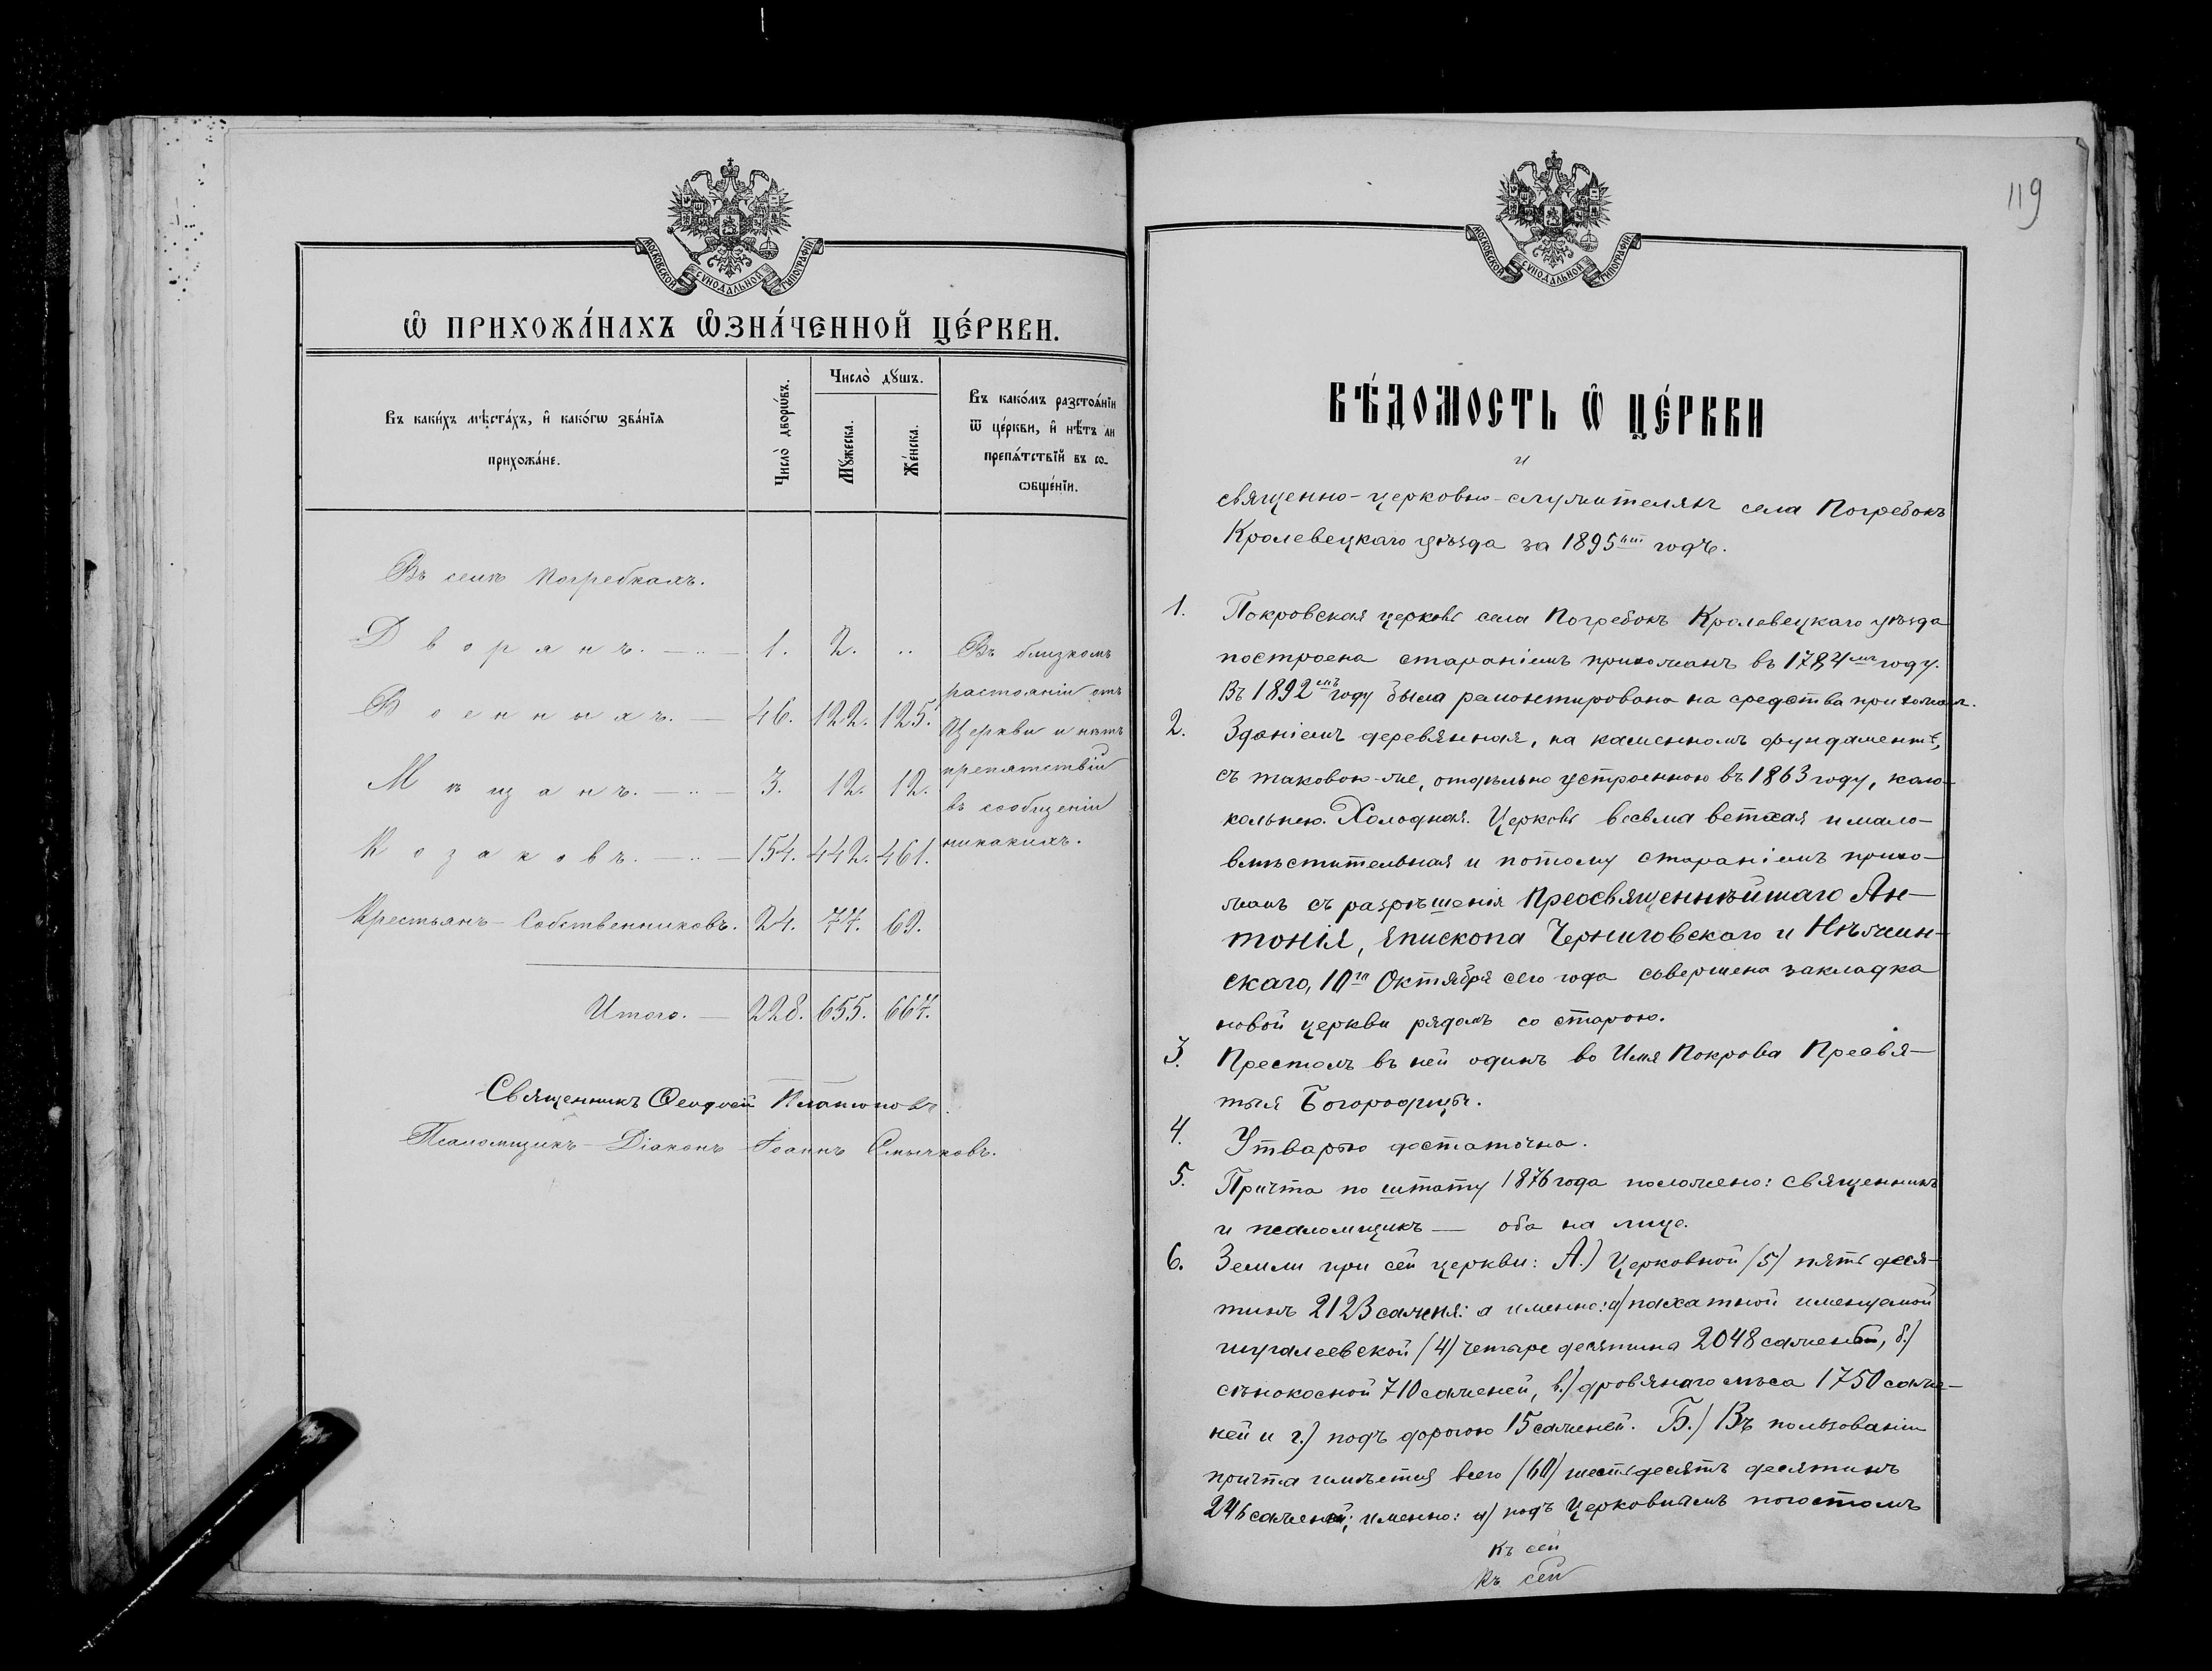 МОСКОВСКОЙ СѴНОДАЛЬНОЙ ТИПОГРАФІИ
Ѡ ПРИХОЖА́НАХЪ Ѡ҆ЗНА́ЧЕННОЙ ЦЕ́РКВИ.
Въ каки́хъ мѣста́хъ, и҆ како́гѡ зва́нїѧ
прихожа́не.
Число̀ дворѡ́въ.
Число̀ дꙋшъ.
Мꙋ́жеска.
Же́нска.
Въ како́мъ разстоѧ́нїи
ѿ це́ркви, и҆ нѣ́тъ ли
препѧ́тствїй въ со-
ѻбще́нїи.
Въ селѣ Погребкахъ.
Дворянъ. — 1. 2. ..
Военныхъ. — 46. 122. 125.
Мѣщанъ. — 3. 12. 12.
Козаковъ. — 154. 442. 461.
Крестьянъ-Собственниковъ. 24. 77. 69.
Итого. — 228. 655. 667.
Въ близкомъ
растояніи отъ
Церкви и нѣтъ
препятствій
въ сообщеніи
никакихъ.
Священникъ Ѳеодосій Платоновъ.
Псаломщикъ-Діаконъ Іоаннъ Смычковъ.
119
МОСКОВСКОЙ СѴНОДАЛЬНОЙ ТИПОГРАФІИ
ВѢ́ДОМОСТЬ Ѡ ЦЕ́РКВИ
и
священно-церковно-служителяхъ села Погребокъ
Кролевецкаго уѣзда за 1895ый годъ.
1. Покровская церковь села Погребокъ Кролевецкаго уѣзда
построена стараніемъ прихожанъ въ 1784мъ году.
Въ 1892мъ году была ремонтирована на средства прихожан.
2. Зданіемъ деревянная, на каменномъ фундаментѣ,
съ таковою-же, отдѣльно устроенною въ 1863 году, коло-
кольнею. Холодная. Церковь весьма ветхая и мало-
вмѣстительная и потому стараніемъ прихо-
жанъ съ разрѣшенія Преосвященнѣйшаго Ан-
тонія, Епископа Черниговскаго и Нѣжин-
скаго, 10го Октября сего года совершена закладка
новой церкви рядомъ со старою.
3. Престолъ въ ней одинъ во Имя Покрова Пресвя-
тыя Богородицы.
4. Утварью достаточна.
5. Причта по штату 1876 года положено: священникъ
и псаломщикъ — оба на лице.
6. Земли при сей церкви: А.) Церковной /5/ пять деся-
тинъ 2123 саженя: а именно: а) пахатной именуемой
шугалеевской /4/ четыре десятины 2048 сажень, б.)
сѣнокосной 710 саженей, в.) дровянаго лѣса 1750 саже-
ней и г.) подъ дорогою 15 саженей. Б.) Въ пользованіи
причта имѣется всего /60/ шестьдесятъ десятинъ
246 сажень; именно: а) подъ церковнымъ погостомъ
къ сей
къ сей